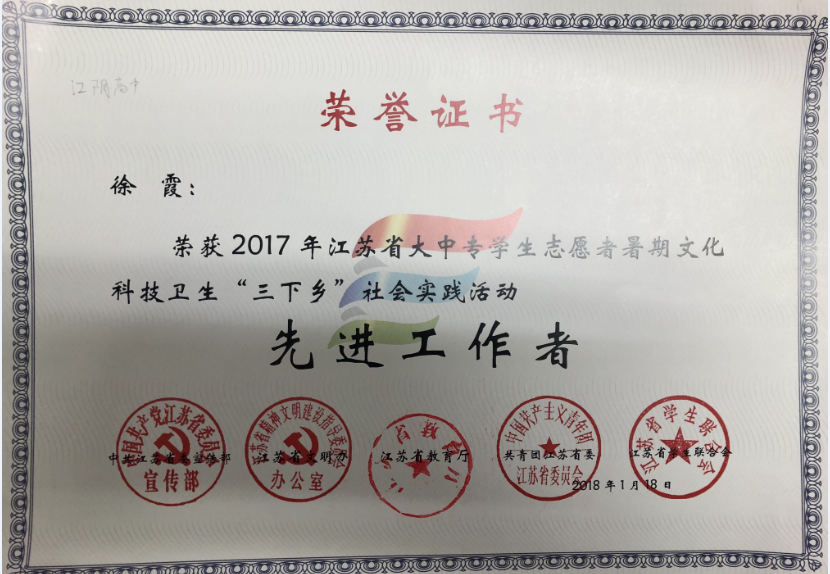 江阴高中
荣誉证书
徐 霞：
荣获2017年江苏省大中专学生志愿者暑期文化
科技卫生“三下乡”社会实践活动
先进工作者
中国共产党江苏省委员会
宣传部
中共江苏省委宣传部
江苏省精神文明建设指导委员会
办公室
江苏省文明办
江苏省教育厅
江苏省教育厅
中国共产主义青年团
江苏省委员会
共青团江苏省委
江苏省学生联合会
江苏省学生联合会
2018年1月18日